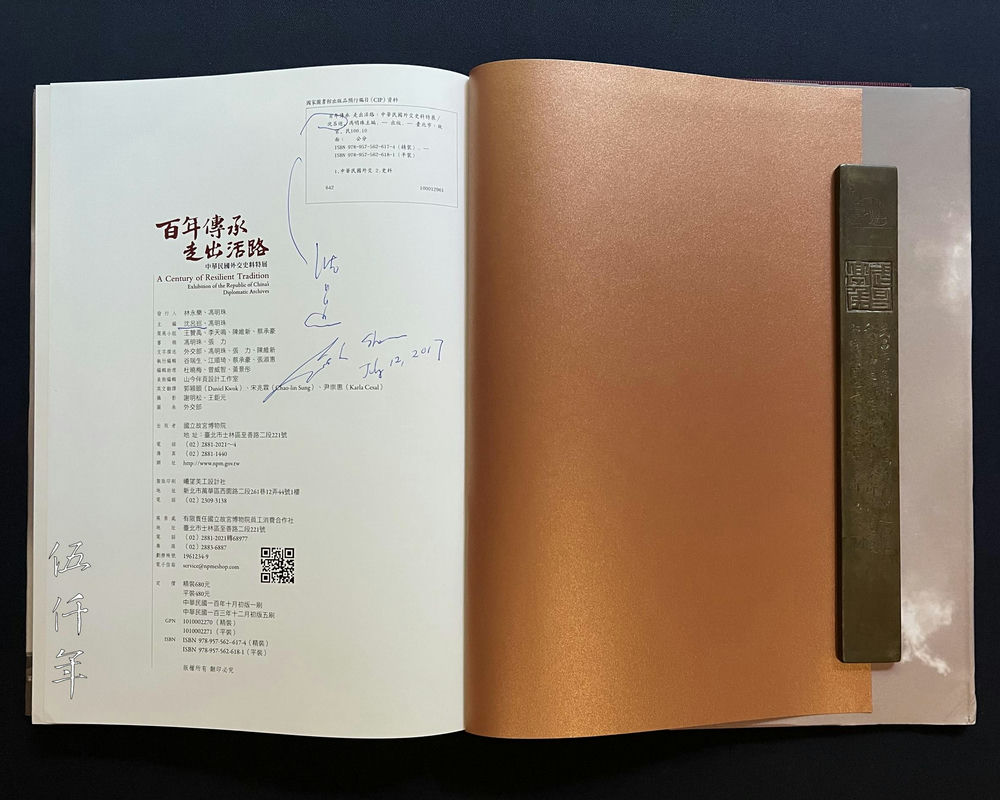 國家圖書館出版品預行編目(CIP)資料
百年傳承 走出活路:中華民國外交史料特展/
沈呂巡,馮明珠主編. -- 出版. -- 臺北市:故
宮, 民100.10
面; 公分
ISBN 978-957-562-617-4(精裝). --
ISBN 978-957-562-618-1(平裝)
1.中華民國外交 2.史料
642 100012961
百年傳承
走出活路
中華民國外交史料特展
A Century of Resilient Tradition
Exhibition of the Republic of China's
Diplomatic Archives
發行人 林永樂、馮明珠
主編 沈呂巡、馮明珠
策展小組 王贊禹、李天鳴、陳維新、蔡承豪
審稿 馮明珠、張 力
文字撰述 外交部、馮明珠、張 力、陳維新
執行編輯 谷瑞生、江順琦、蔡承豪、張淑惠
編輯助理 杜曉梅、曾威智、黃景彤
美術編輯 山今伴頁設計工作室
英文翻譯 郭穎頤(Daniel Kwok)、宋兆霖(Chao-lin Sung)、尹崇惠(Karla Cesal)
攝影 謝明松、王鉅元
圖系 外交部
出版者 國立故宮博物院
地址:臺北市士林區至善路二段221號
電話 (02)2881-2021~4
傳真 (02)2881-1440
網址 http://www.npm.gov.tw
製版印刷 曦望美工設計社
地址 新北市萬華區西園路二段261巷12弄44號1樓
電話 (02)2309-3138
展售處 有限責任國立故宮博物院員工消費合作社
地址 臺北市士林區至善路二段221號
電話 (02)2881-2021轉68977
傳真 (02)2883-6887
劃撥帳號 1961234-9
電子信箱 service@npmeshop.com
定價 精裝680元
平裝480元
中華民國一百年十月初版一刷
中華民國一百三年十二月初版五刷
GPN 1010002270(精裝)
1010002271(平裝)
ISBN ISBN 978-957-562-617-4(精裝)
ISBN 978-957-562-618-1(平裝)
版權所有 翻印必究
July 12, 2017
伍仟年